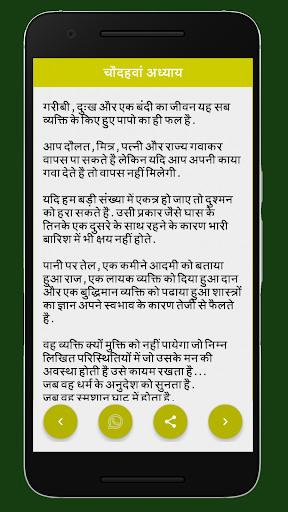 चौदहवां अध्याय
गरीबी , दुःख और एक बंदी का जीवन यह सब
व्यक्ति के किए हुए पापो का ही फल है .
आप दौलत , मित्र , पत्नी और राज्य गवाकर
वापस पा सकते है लेकिन यदि आप अपनी काया
गवा देते है तो वापस नहीं मिलेगी .
यदि हम बड़ी संख्या में एकत्र हो जाए तो दुश्मन
को हरा सकते है . उसी प्रकार जैसे घास के
तिनके एक दुसरे के साथ रहने के कारण भारी
बारिश में भी क्षय नहीं होते .
पानी पर तेल , एक कमीने आदमी को बताया
हुआ राज , एक लायक व्यक्ति को दिया हुआ दान
और एक बुद्धिमान व्यक्ति को पढाया हुआ शास्त्रों
का ज्ञान अपने स्वभाव के कारण तेजी से फैलते
है .
वह व्यक्ति क्यों मुक्ति को नहीं पायेगा जो निम्न
लिखित परिस्थितियों में जो उसके मन की
अवस्था होती है उसे कायम रखता है ...
जब वह धर्म के अनुदेश को सुनता है .
जब वह स्मशान घाट में होता है .